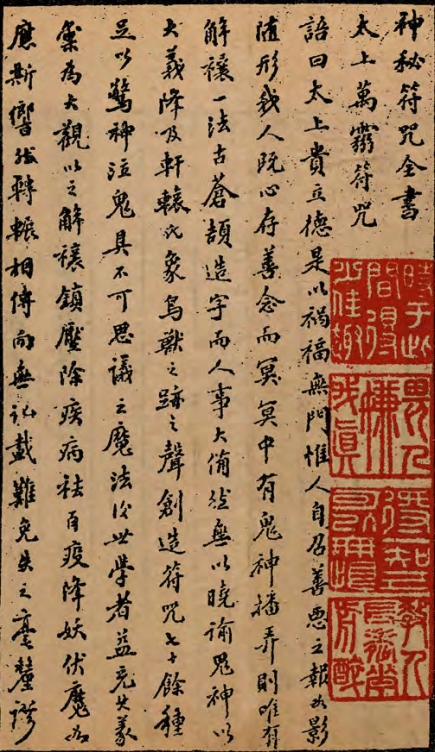 神秘符咒全書
太上萬靈符咒
語曰太上貴立德是以禍福無門惟人自召善惡之報如影
随形我人既心存善念而冥冥中有鬼神播弄則唯有
解禳一法古蒼頡造字而人事大俻然無以曉諭鬼神以
大義降及軒轅氏象鳥獸之跡之聲創造符咒七十餘種
足以驚神泣鬼具不可思議之魔法後世學者益充其義
彙為大觀以之解禳鎮壓除疾病祛百疫降妖伏魔如
應斯響然轉輾相傳向無載難免失之毫釐謬
時于此間得少佳趣
畏人嫌我真